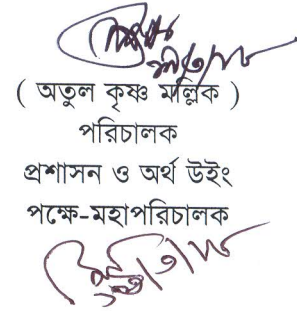 ( অতুল কৃষ্ণ মল্লিক )
পরিচালক
প্রশাসন ও অর্থ উইং
পক্ষে-মহাপরিচালক